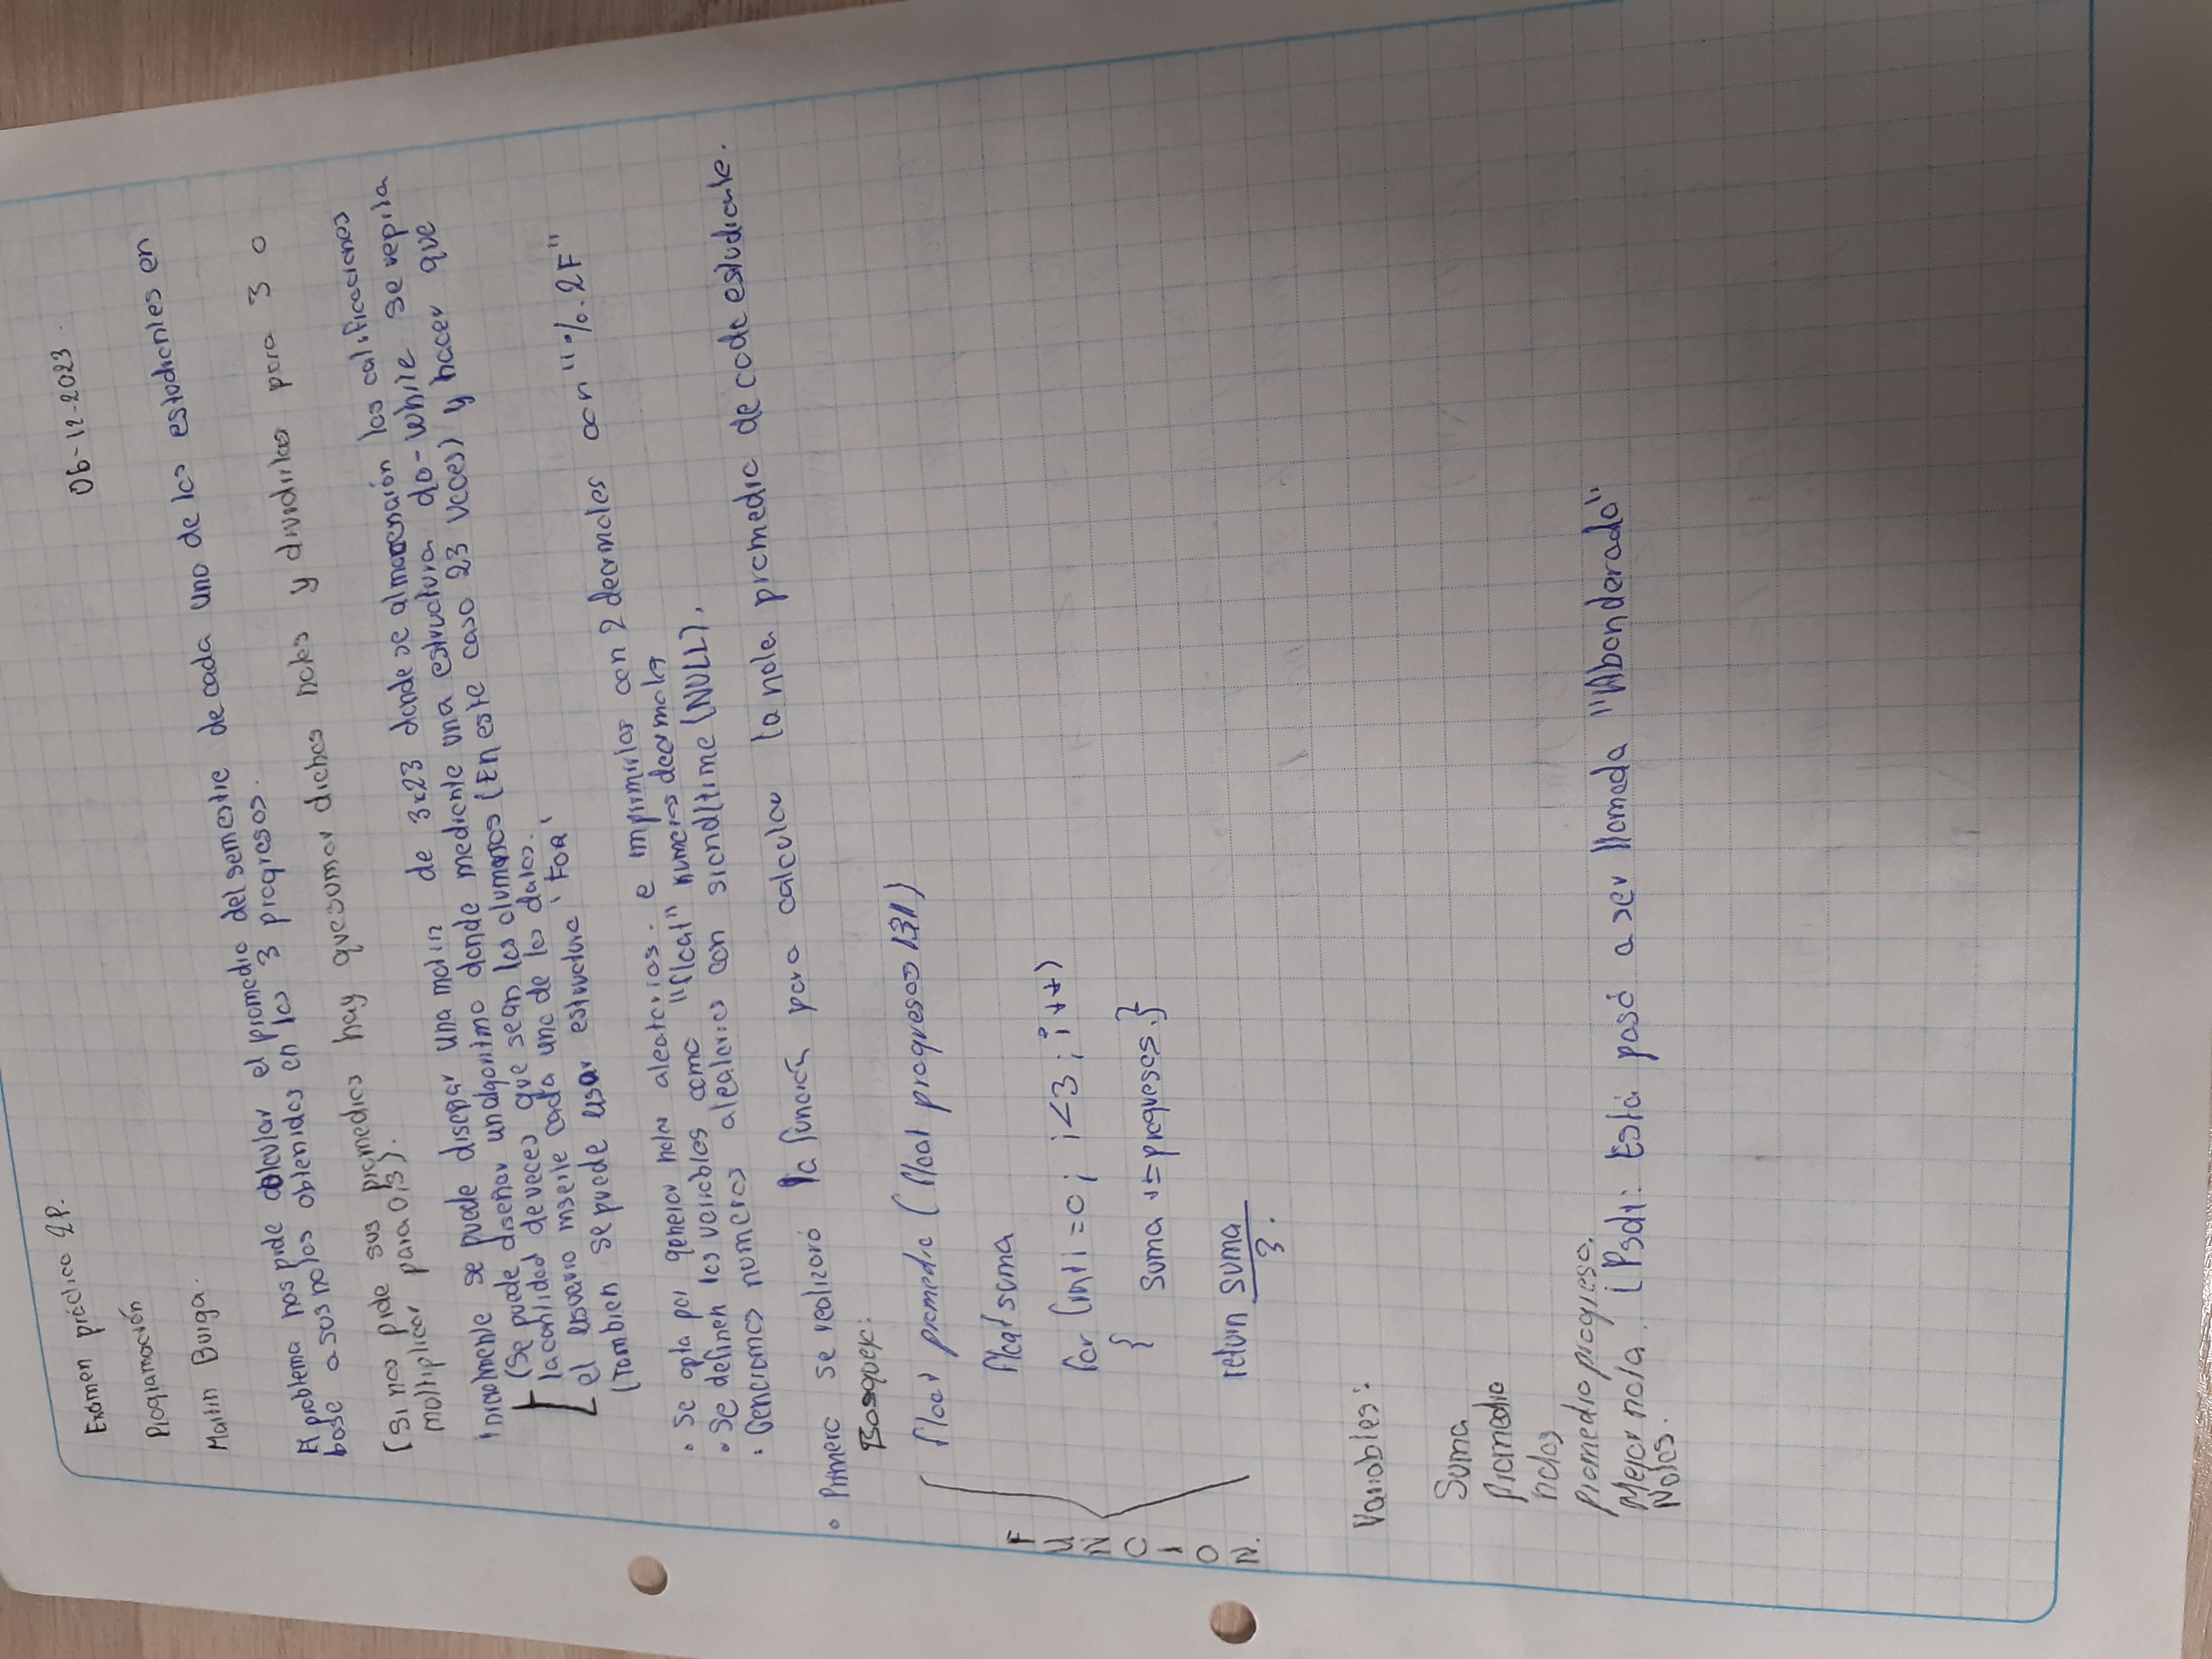 Examen práctico 2P.
06-12-2023.
Programación
Martin Burga.
El problema nos pide calcular el promedio del semestre de cada uno de los estudientes en
base a sus notas obtenidas en los 3 progresos.
(Si nos pide sus promedios hay que sumar dichas notas y dividirlas para 3 o
moltiplicar para 0,3).
Inicialmente se puede diseñar una matriz de 3x23 donde se almacenarón las calificaciones
(Se puede diseñar un algoritmo donde mediente una estructura do-while se repita
la cantidad de veces que sean los alumnos (En este caso 23 veces) y hacer que
el usuario inserte cada uno de los datos.
(Tambien se puede usar estructura 'FOR'
• Se opta por generar notas aleatorias. e imprimirlas con 2 decimales con "%.2F"
• Se definen las variables como "float" numeros decimales
• Generamos numeros aleatorios con srand(time(NULL).
• Primero se realizará la función para calcular la nota promedio de cada estudiante.
Bosquex:
float promedio (float progresos [3])
float suma
for (int i = 0; i<3; i++)
{ suma += progresos.}
return suma
3.
FUNCION.
Variables:
Suma
Promedio
notas
promedio progreso.
Mejor nota. (Psdt: Está pasó a ser llamada "Abanderado"
Notas.